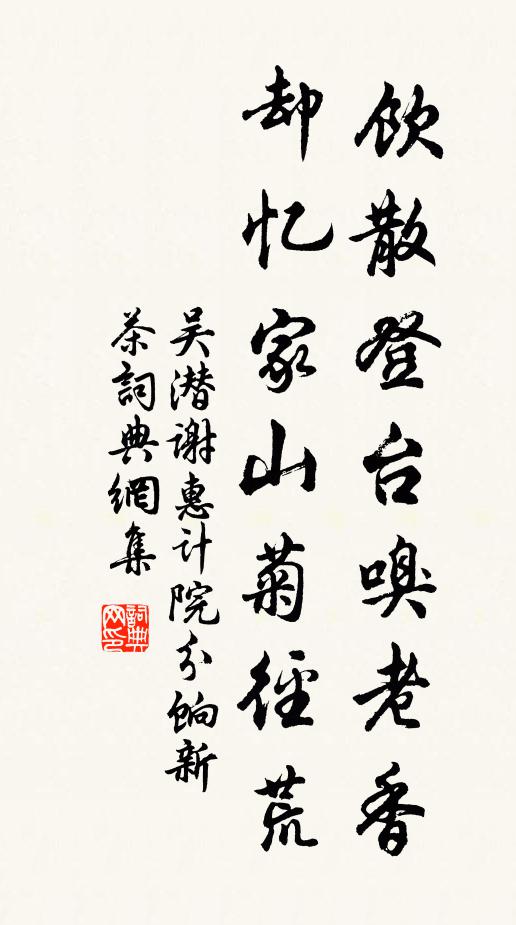 饮散登台嗅老香
却忆家山菊径荒
吴潜谢惠计院分饷新
茶詞典網集
詞典网印